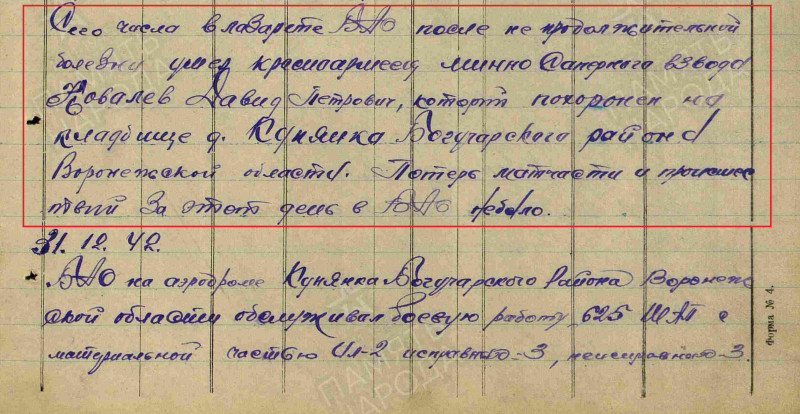 Сего числа в лазарете БАО после не продолжительной
болезни умер красноармеец минно Саперного взвода
Ковалев Давид Петрович, который похоронен на
кладбище д. Кунянка Богучарского района
Воронежской области. Потерь матчасти и происшес
твий За этот день в БАО небыло.
31. 12. 42.
БАО на аэродроме Кунянка Богучарского Района Воронеж
ской области обслуживал боевую работу 625 ШАП с
материальной частью Ил-2 исправного-3, неисправного-3.
Форма № 4.
ПАМЯТЬ
НАРОДА